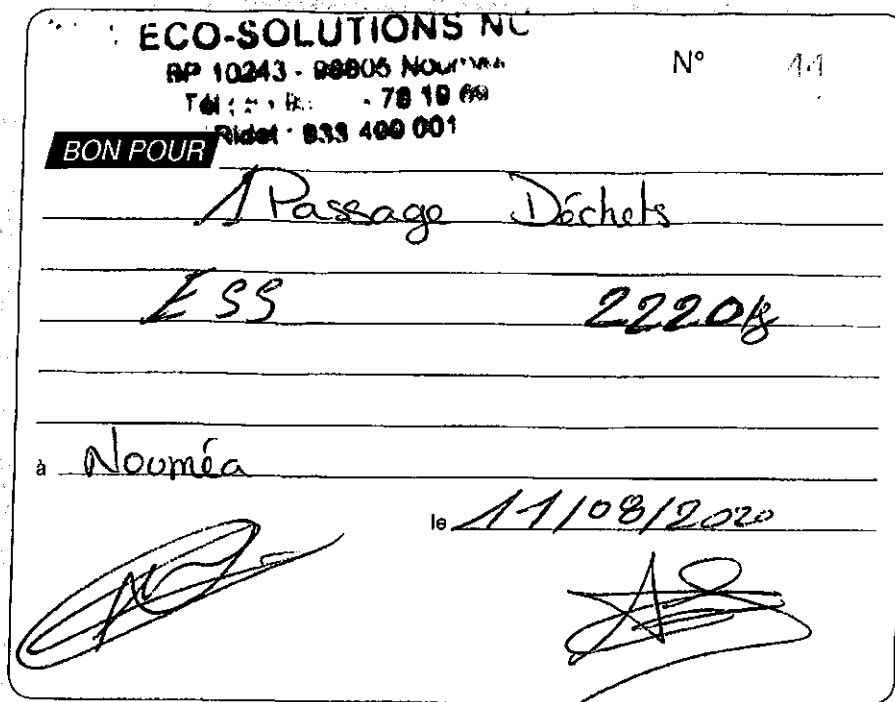 ECO-SOLUTIONS NC
BP 10243 - 98805 Nouméa
N° 11
Tél - 78 19 69
Ridet : 933 400 001
BON POUR
1 Passage Déchets
ESS 2220 kg
à Nouméa
le 11/08/2020